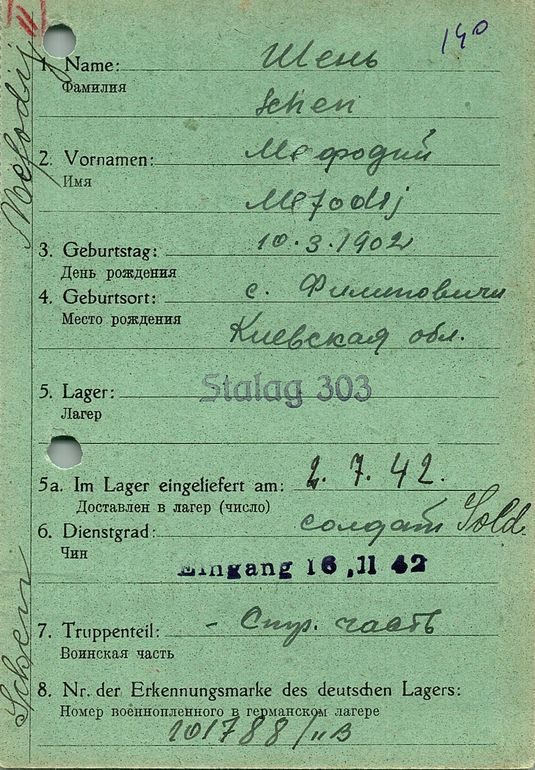 140
1. Name: Шень
Фамилия
Schen
2. Vornamen: Мефодий
Имя
Mefodij
3. Geburtstag: 10.3.1902
День рождения
4. Geburtsort: с. Филиповичи
Место рождения
Киевская обл.
5. Lager: Stalag 303
Лагер
5a. Im Lager eingeliefert am: 2.7.42.
Доставлен в лагер (число)
6. Dienstgrad: солдат Sold.
Чин
Eingang 16.11 42
7. Truppenteil: - Стр. часть
Воинская часть
8. Nr. der Erkennungsmarke des deutschen Lagers:
Номер военнопленного в германском лагере
101788/IIB
Schen Mefodij